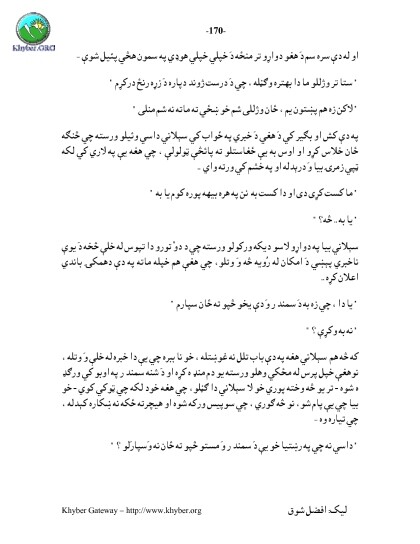 -170-
Khyber.ORG
او له دې سره سم د هغو دواړو تر منځه د خپلې خپلې هوډې په سمون هڅې پئيل شوې -
" ستا تر وژللو ما دا بهتره وګڼله ، چې د درست ژوند دپاره د زړه رنځ درکړم "
" لاکن زه هم پښتون يم ، ځان وژللی شم خو ښځې ته ماته نه شم منلی "
په دې کش او بګير کې د هغې د خبرې په ځواب کې سېلاني داسې وئيلو ورسته چې څنګه
ځان خلاس کړو او اوس به يې څغاستلو ته پائڅې ټولولې ، چې هغه يې په لاري کې لکه
ټپي زمرۍ بيا ودرېدله او په خشم کې ورته وای -
" ما کست کړی دی او دا کست به نن په هره بيهه پوره کوم يا به "
" يا به .. څه ؟ "
سېلاني بيا په دواړو لاسو ديکه ورکولو ورسته چې د دوْ تورو دا تپوس له خلې څخه د يوې
ناخبرې پېښې د امکان له رُويه څه وَ وتلو ، چې هغې هم خپله ماته په دې دهمکۍ باندې
اعلان کړه -
" يا دا ، چې زه به د سمندر وَ دې يخو څپو ته ځان سپارم "
" نه به وکړې ؟ "
که څه هم سېلاني هغه په دې باب تلل نه غوښتله ، خو نا ببره چې يې دا خبره له خلې وَ وتله ،
نو هغې خپل پرس له مځکې وهلو ورسته يو دم منډه کړه او د شنه سمندر په اوبو کې ورګډه
ه شوه - تر يو څه وخته پورې خو لا سېلاني دا ګڼلو ، چې هغه خود لکه چې ټوکې کوي - خو
بيا چې يې پام شو ، نو څه ګوري ، چې سوپيس ورکه شوه او هيچرته ځکه نه ښکاره کېدله ،
چې تياره وه -
" داسې نه چې په رښتيا خو يې د سمندر و مستو څپو ته ځان نه وَسپارلو ؟ "
Khyber Gateway – http://www.khyber.org
ليک: افضل شوق